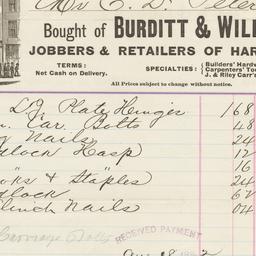 Mr E. D. Peter
Bought of BURDITT & WIL
JOBBERS & RETAILERS OF HAR
TERMS:
Net Cash on Delivery.
SPECIALTIES: { Builders' Hardw
Carpenters' Too
J. & Riley Carr's
All Prices subject to change without notice.
Plate Hinges 168
Car. Bolts 48
Nails 24
dlock Hasp 12
16
oks & Staples 24
dlock 62
Clinch Nails 04
Carriage Bolts
RECEIVED PAYMENT